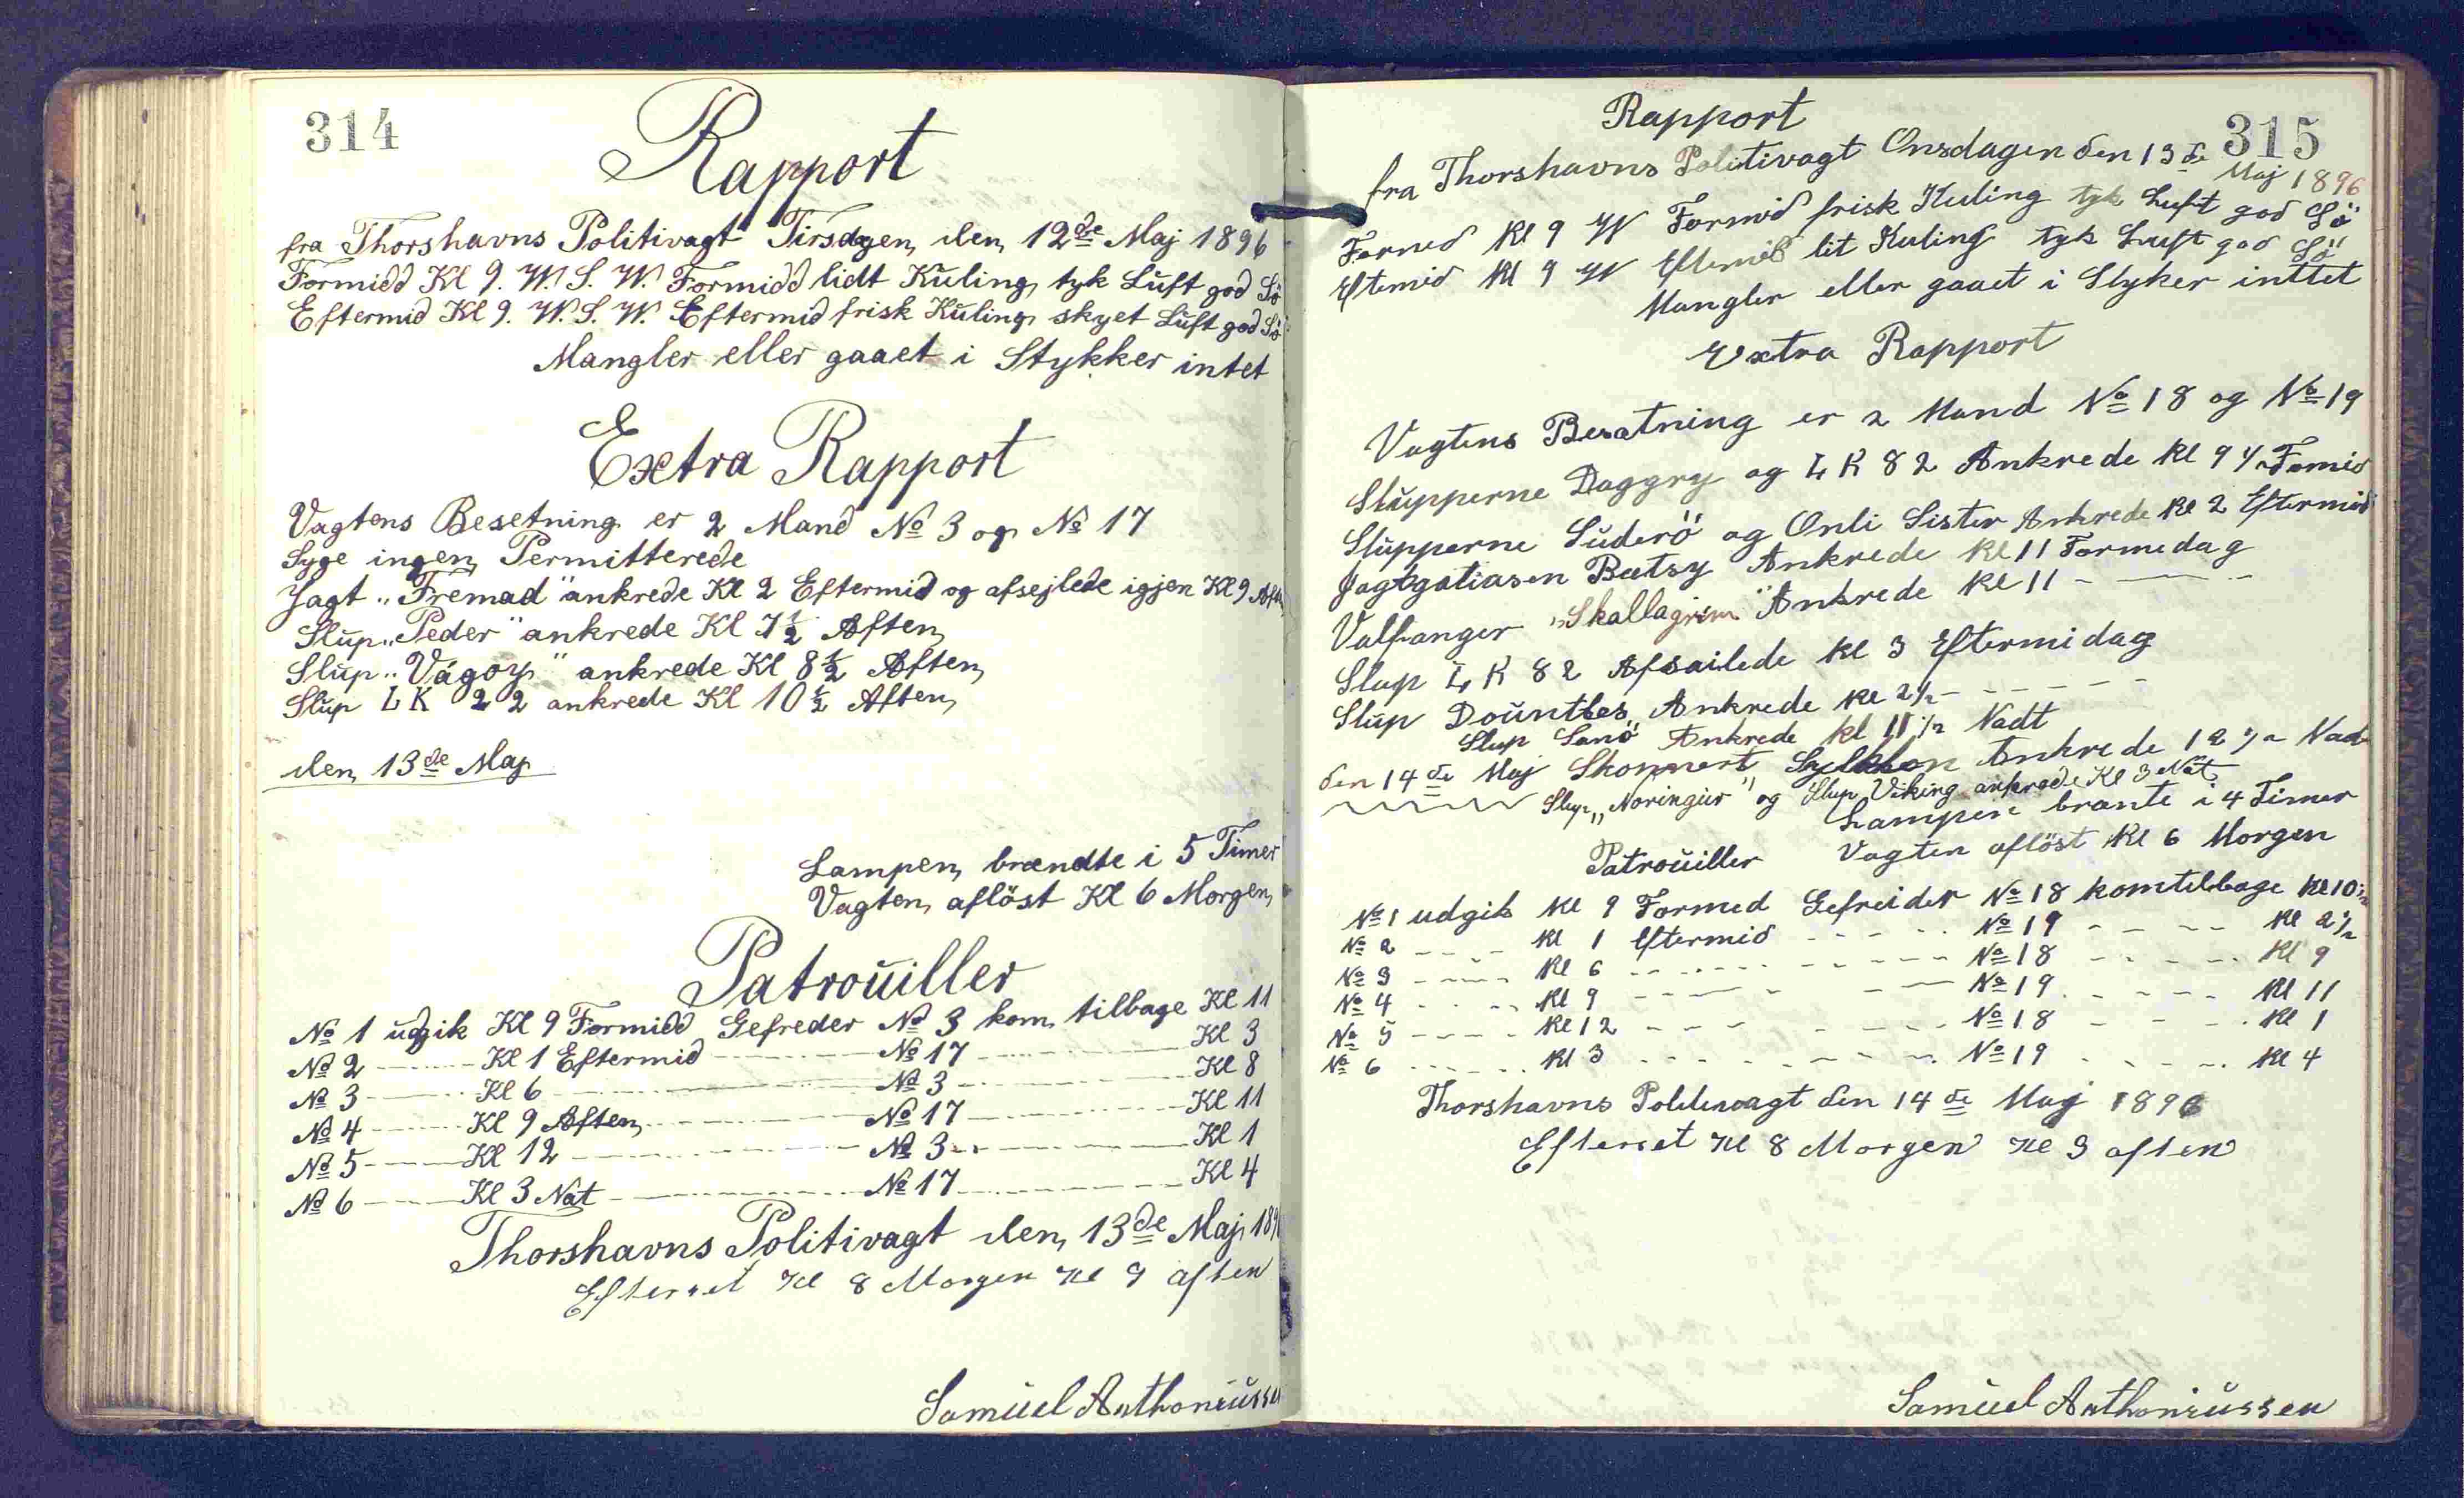 314
Rapport
fra Thorshavns Politivagt Tirsdagen den 12de Maj 1896
Formidd Kl 9. W. S. W. Formidd lidt Kuling tyk Luft god Sö
Eftermid Kl 9. W. S. W. Eftermid frisk Kuling skyet Luft god Sö
Mangler eller gaaet i Stykker intet
Extra Rapport
Vagtens Besetning er 2 Mand No 3 og No 17
Syge ingen Permitterede
Jagt „Fremad" ankrede Kl 2 Eftermid og afsejlede igjen Kl 9 Aft
Slup „Peder" ankrede Kl 7 1/2 Aften
Slup „Vágoy" ankrede Kl 8 1/2 Aften
Slup LK 22 ankrede Kl 10 1/2 Aften
den 13de Maj
Lampen brændte i 5 Timer
Vagten aflöst Kl 6 Morgen
Patrouiller
No 1 udgik Kl 9 Formidd Gefreder No 3 kom tilbage Kl 11
No 2 Kl 1 Eftermid No 17 Kl 3
No 3 Kl 6 No 3 Kl 8
No 4 Kl 9 Aften No 17 Kl 11
No 5 Kl 12 No 3 Kl 1
No 6 Kl 3 Nat No 17 Kl 4
Thorshavns Politivagt den 13de Maj 189
Efterset Kl 8 Morgen Kl 9 aften
Samuel Anthoniusse
315
Rapport
fra Thorshavns Politivagt Onsdagen den 13de Maj 1896
Formed Kl 9 W Formid frisk Kuling tyk Luft god Sö
Eftemid Kl 9 W Eftemid lit Kuling tyk Luft god Sö
Mangler eller gaaet i Styker inttet
Extra Rapport
Vagtens Besatning er 2 Mand No 18 og No 19
Slupperne Daggry og LK 82 Ankrede Kl 9 1/2 Fomid
Slupperne Suderö og Onli Sister Ankrede Kl 2 Eftermid
Jagtgatiasen Batsy Ankrede Kl 11 Formedag
Valfanger „Skallagrim" Ankrede Kl 11 - - -
Slup LK 82 Afsailede Kl 3 Eftermidag
Slup Dountles Ankrede Kl 2 1/2 - - - - -
Slup Sanö Ankrede kl 11 1/2 Nadt
den 14de Maj Skonnert Ankrede 12 1/2 Nad
Slup „Noringur" og Slup Viking ankrede Kl 3 Nat
Lampen brante i 4 Timer
Patrouiller Vagten aflöst Kl 6 Morgen
No 1 udgik Kl 9 Formed Gefreider No 18 komtilbage Kl 10 1/2
No 2 Kl 1 Eftermid No 19 Kl 2 1/2
No 3 Kl 6 No 18 Kl 9
No 4 Kl 9 No 19 Kl 11
No 5 Kl 12 No 18 Kl 1
No 6 Kl 3 No 19 Kl 4
Thorshavns den 14de Maj 1896
Efterset Kl 8 Morgen Kl 9 aften
Samuel Anthoniussen